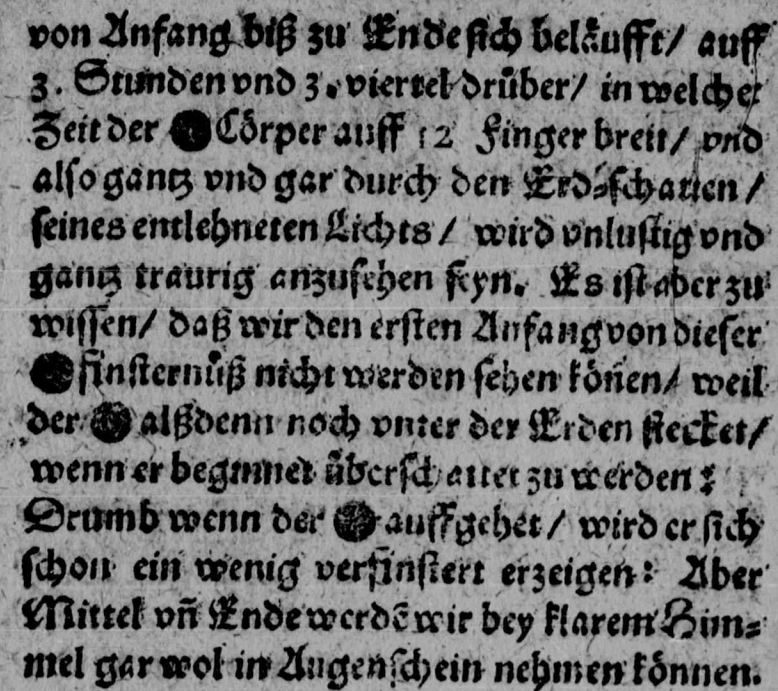 von Anfang biß zu Ende sich belåufft/ auff
3. Stunden vnd 3. viertel drůber/ in welcher
Zeit der Cörper auff 12 Finger breit/ vnd
also gantz vnd gar durch den Erd-schatten/
seines entlehneten Lichts/ wird vnlustig vnd
gantz traurig anzusehen seyn. Es ist aber zu
wissen/ daß wir den ersten Anfang von dieser
finsternůß nicht werden sehen kön̄en/ weil
der alßdenn noch vnter der Erden stecket/
wenn er beginnet überschattet zu werden:
Drumb wenn der auffgehet/ wird er sich
schon ein wenig verfinstert erzeigen: Aber
Mittel vn̄ Ende werdē wir bey klarem Him-
mel gar wol in Augenschein nehmen können.